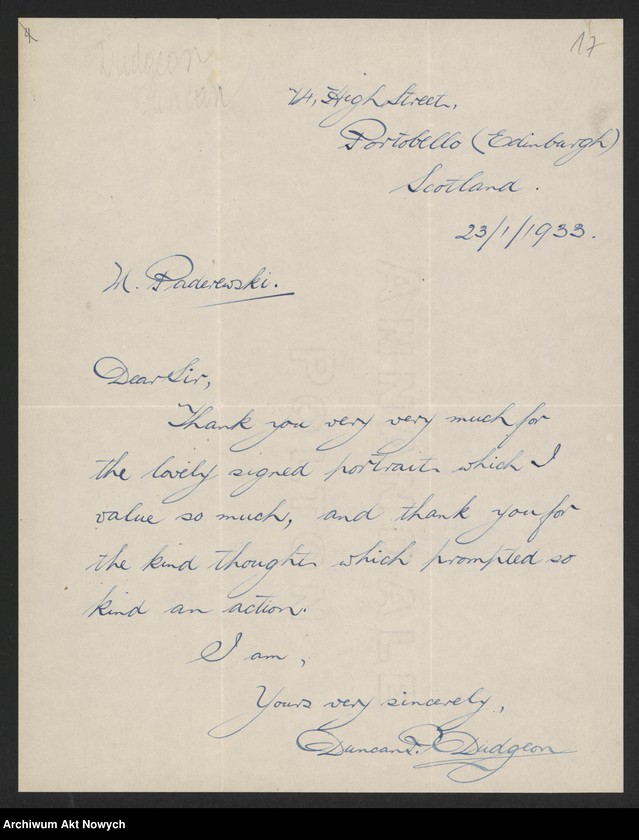 4
17
Dudgeon
Duncan
74, High Street,
Portobello (Edinburgh)
Scotland.
23/1/1933.
M. Paderewski.
Dear Sir,
Thank you very very much for
the lovely signed portrait which I
value so much, and thank you for
the kind thought which prompted so
kind an action.
I am,
Yours very sincerely,
Duncan F. Dudgeon
Archiwum Akt Nowych